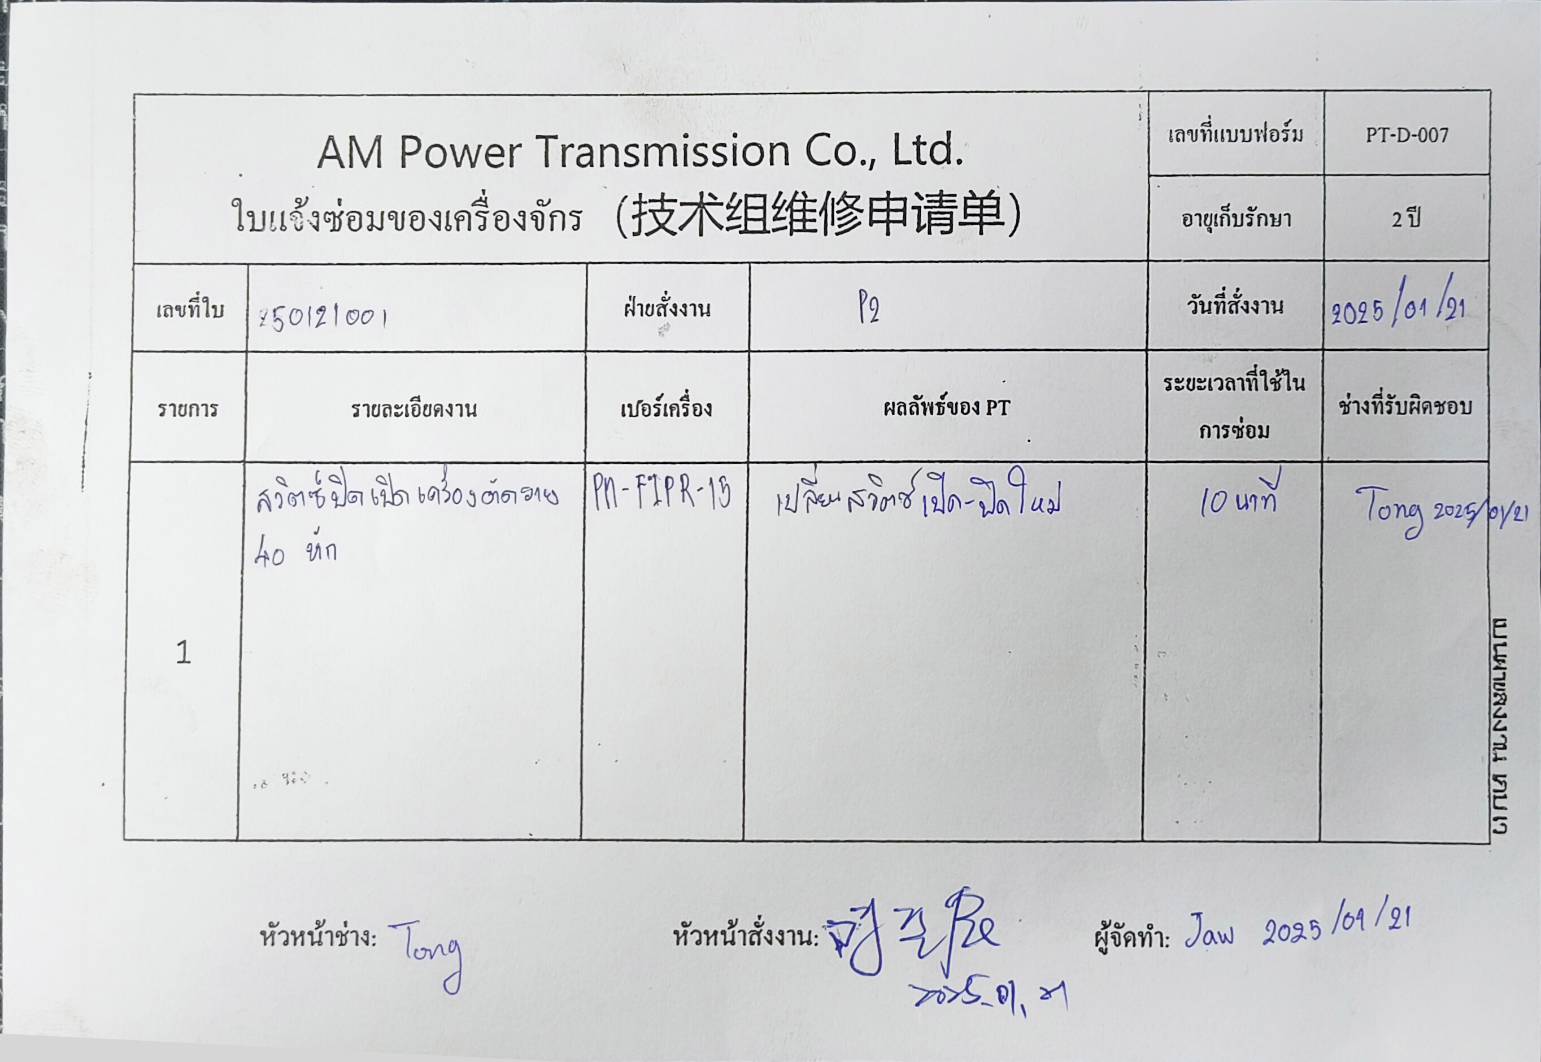 AM Power Transmission Co., Ltd.
ใบแจ้งซ่อมของเครื่องจักร (技术组维修申请单)
เลขที่แบบฟอร์ม PT-D-007
อายุเก็บรักษา 2 ปี
เลขที่ใบ 250121001 ฝ่ายสั่งงาน P2 วันที่สั่งงาน 2025/01/21
รายการ รายละเอียดงาน เบอร์เครื่อง ผลลัพธ์ของ PT ระยะเวลาที่ใช้ใน ช่างที่รับผิดชอบ
การซ่อม
สวิตซ์ปิดเปิดเครื่องตัดลาย PN-FIPR-15 เปลี่ยนสวิตซ์เปิด-ปิดใหม่ 10 นาที Tong 2025/01/21
40 หัก
1
หัวหน้าช่าง: Tong หัวหน้าสั่งงาน: ผู้จัดทำ: Jaw 2025/01/21
2025.01.21